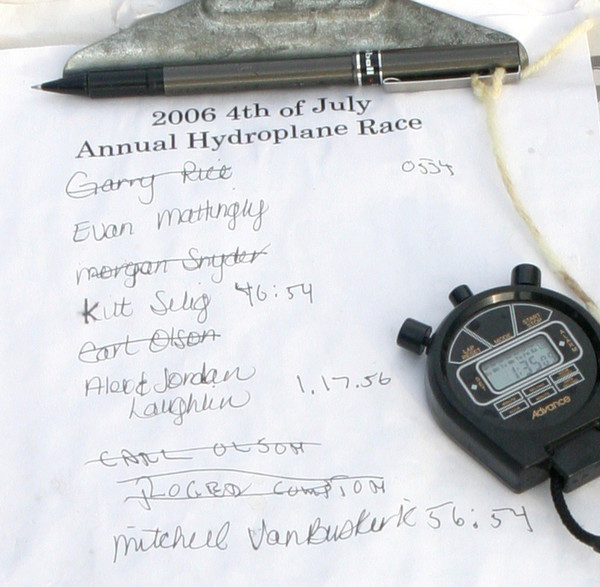 ball
2006 4th of July
Annual Hydroplane Race
Garry Rice 0554
Evan Mattingly
morgan Snyder
Kut Selig 46:54
Carl Olson
Alex & Jordan 1.17.56
Laughlin
CARL OLSON
ROGER COMPTON
mitchell VanBuskerk 56:54
START
STOP
MODE
LAP
Advance